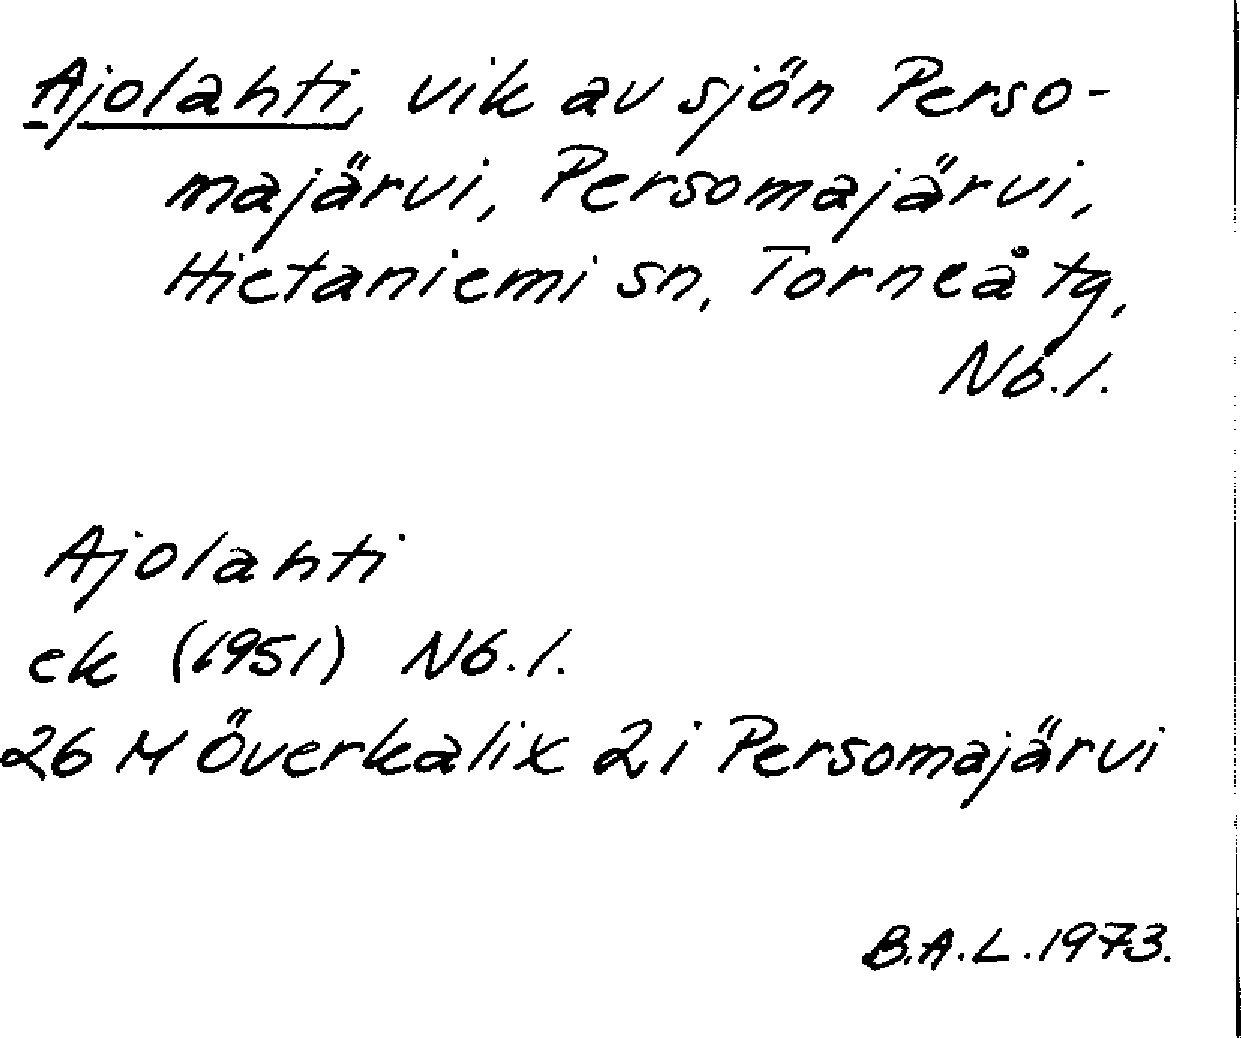 Ajolahti, vik av sjön Perso-
majärvi, Persomajärvi,
Hietaniemi sn, Torneå tg,
Nb.l.
Ajolahti
ek (1951) Nb.l.
26 M Överkalix 2i Persomajärvi
B.A.L. 1973.